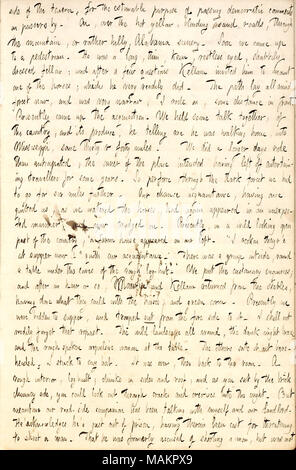 side of the tavern, for the estimable purpose of passing democratic remarks
on passers by. On, over the hot yellow, blinding sand roads, through
the mountain, or rather hilly, Alabama scenery. Soon we came up
to a pedestrian. He was a long, thin man, restless eyed, tawdrily
dressed fellow; and after a few questions Kellam invited him to mount
one of the horses; which he very readily did. The path lay all amid
forest now, and was very narrow. I rode on, some distance in front.
Presently came up the acquaintance. We held some talk together, of
the country, and its produce; he telling me he was walking home, into
Mississippi, some thirty or forty miles. We did a longer days ride
than anticipated, the owner of the place intended having left off entertaining
traveller for some years. So perforce through the dark forest we had
to go for six miles further. Our chance acquaintance, having once
quitted us as we watered the horses had again appeared in an unexpected
manner, Presently, in a wild looking open
part of the country, a tavern house appeared on our left. I reckon they're
at supper now! quoth our acquaintance. There was a group outside, and
a table under the eaves of the rough log-hut. We put the customary enquiries,
and after an hour or so, and Kellam returned from the stables,
having done what they could with the horses, and green corn. Presently we
were ridden to supper, and tramped out from the far side to it. I shall not
readily forget that repast. The wild landscape all around, the dark night wind,
and the rough spoken, unpolished women at the table. The others sate about bareheaded.
I stuck to my hat. It was over, then back to the room. A
rough interior, log-built, chunks in sides and roof, and as you sat by the brick
chimney side, you could look out through cracks and crevices into the night. Our
acquaintance our road side companion has been talking with himself and our landlord.
He acknowledges he is just out of prison, having therein been cast for threatening
to shoot a man. That he was formerly accused of shooting a man, but was not
alamy
Image ID: MAKPX9
www.alamy.com